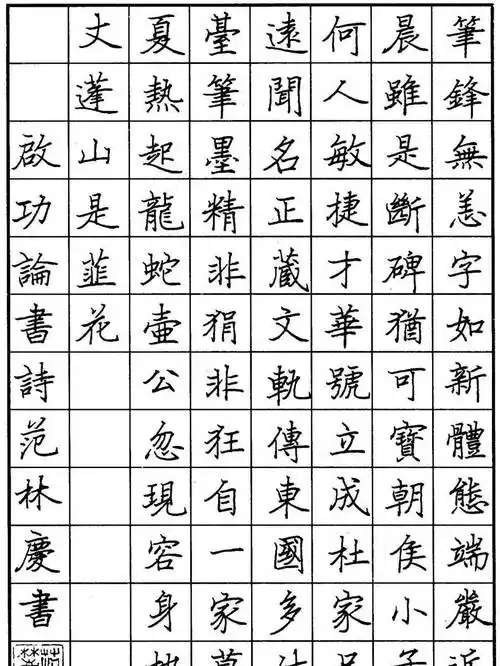 筆鋒無恙字如新體態端嚴近
晨雖是斷碑猶可寶朝侯小子
何人敏捷才華號立成杜家
遠聞名正藏文軌傳東國多
臺筆墨精非狷非狂自一家
夏熱起龍蛇壺公忽現容身地
丈蓬山是韮花
啟功論書詩范林慶書